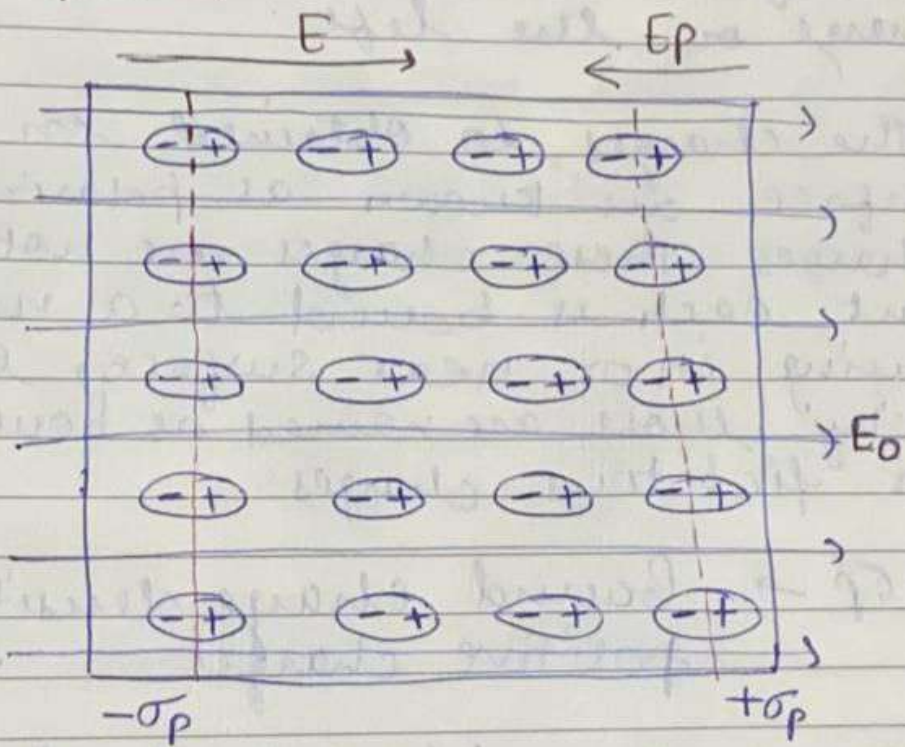 E Ep
- + - + - + - +
- + - + - + - +
- + - + - + - +
E₀
- + - + - + - +
- + - + - + - +
-σp +σp